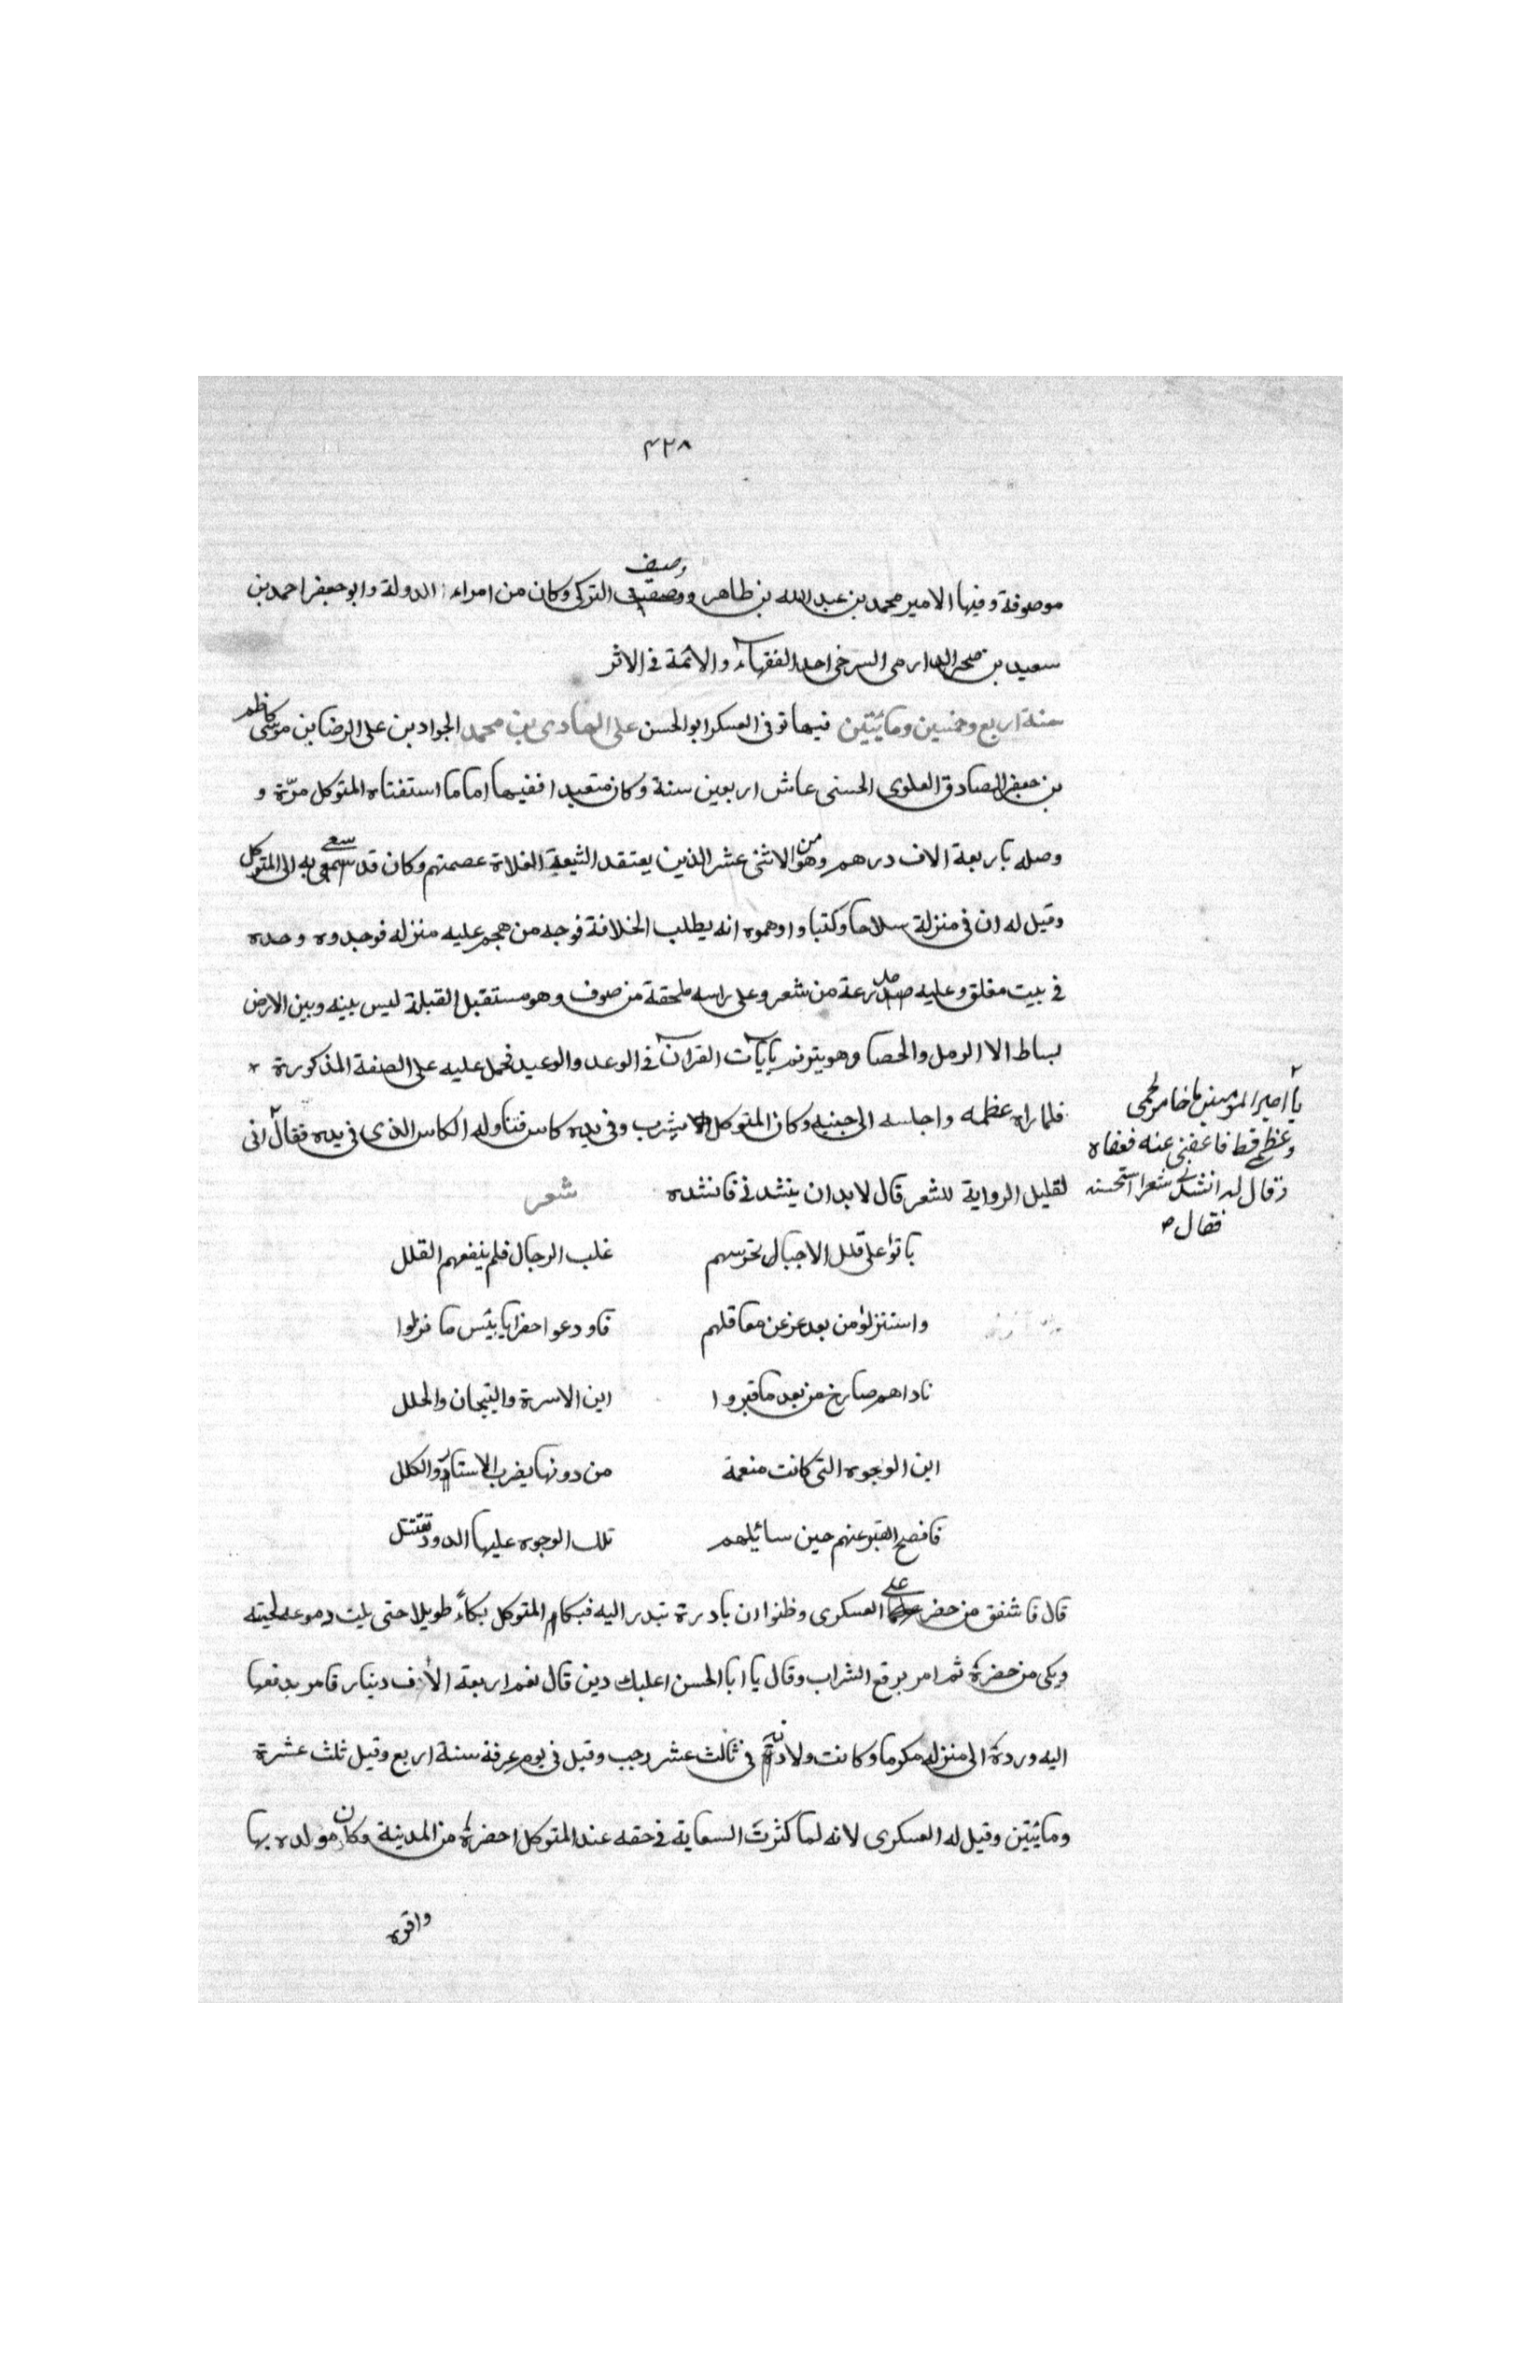 ٤٢٨
موصوفة وفيها الامير محمد بن عبد الله بن طاهر ووصيف التركى وكان من امراء الدولة وابو جعفر احمد بن
سعيد بن صخر الدارمى السرخى احد الفقهاء والائمة فى الاثر
سنة اربع وخمسين ومائيتين فيها توفى العسكر ابو الحسن على الهادى بن محمد الجواد بن على الرضا بن موسى كاظم
بن جعفر الصادق العلوى الحسنى عاش اربعين سنة وكان متعبدا فقيها اماما استفتاه المتوكل مرّة و
وصله باربعة الاف درهم وهو من الاثنى عشر الذين يعتقد الشيعة الغلاة عصمتهم وكان قد سعى به الى المتوكل
وقيل له ان فى منزلة سلاحا وكتبا واوهموه انه يطلب الخلافة فوجه من هجم عليه منزله فوجدوه وحده
فى بيت مغلق وعليه مدرعة من شعر وعلى راسه ملحقة من صوف وهو مستقبل القبلة ليس بينه وبين الارض
بساط الا الرمل والحصا وهو يترنم بآيات القرآن فى الوعد والوعيد فحمل عليه على الصفة المذكورة
فلما راه عظمه واجلسه الى جنبه وكان المتوكل يشرب وفى يده كاس فناوله الكاس الذى فى يده فقال انى
يا امير المومنين ما خامر لحمى
وعظمى قط فاعفنى عنه فعفاه
وقال له انشدنى شعرا استحسنه
فقال
لقليل الرواية للشعر قال لا بد ان ينشدنى فانشده شعر
باتوا على قلل الاجبال تحرسهم غلب الرجال فلم ينفعهم القلل
واستنزلوا من بعد عز عن معاقلهم فاودعوا حفرا يا بئس ما نزلوا
ناداهم صارخ من بعد ما قبروا اين الاسرة والتيجان والحلل
اين الوجوه التى كانت منعمة من دونها يضرب الاستار والكلل
فافصح القبر عنهم حين سائيلهم تلك الوجوه عليها الدود تقتتل
قال فاشفق من حضر على العسكرى وظنوا ان بادرة تبدر اليه فبكا المتوكل بكاءً طويلا حتى بلت دموعه لحيته
وبكى من حضرة ثم امر برفع الشراب وقال يا ابا الحسن اعليك دين قال نعم اربعة الاف دينار فامر بدفعها
اليه وردة الى منزله مكرما وكانت ولادته فى ثالث عشر رجب وقيل فى يوم عرفة سنة اربع وقيل ثلث عشرة
ومائيتين وقيل له العسكرى لانه لما كثرت السعاية فى حقه عند المتوكل احضرة من المدينة وكان مولده بها
واقره